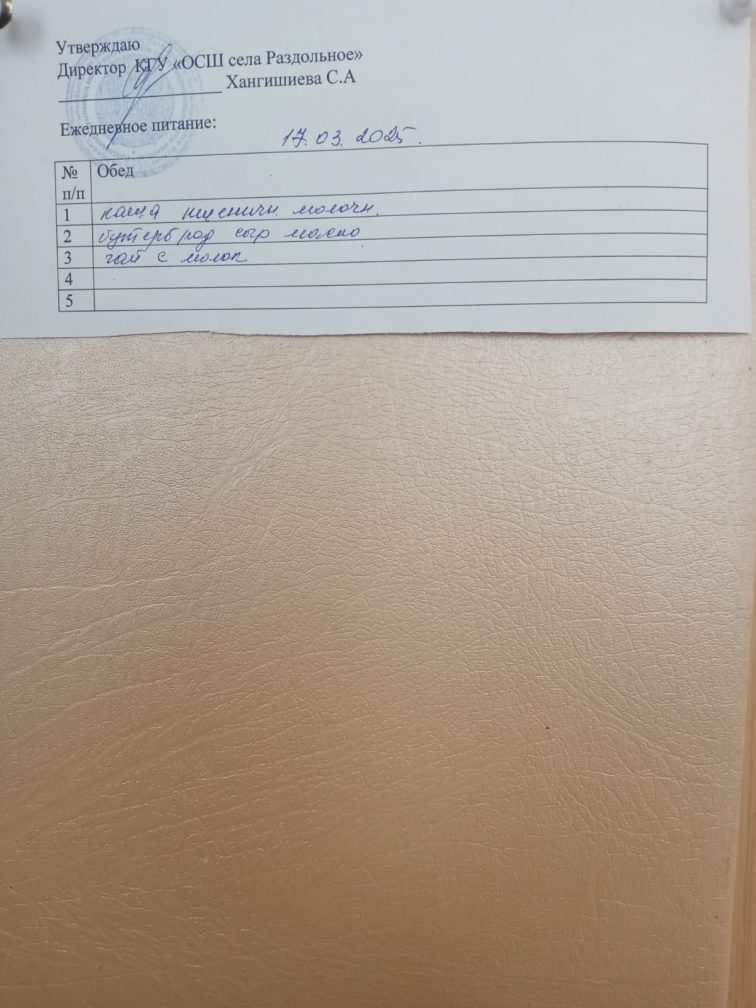 Утверждаю
Директор КГУ «ОСШ села Раздольное»
Хангишиева С.А
Ежедневное питание:
17.03.2025.
№ п/п Обед
1 каша пшеничн. молочн.
2 бутерброд сыр масло
3 чай с молок
4
5